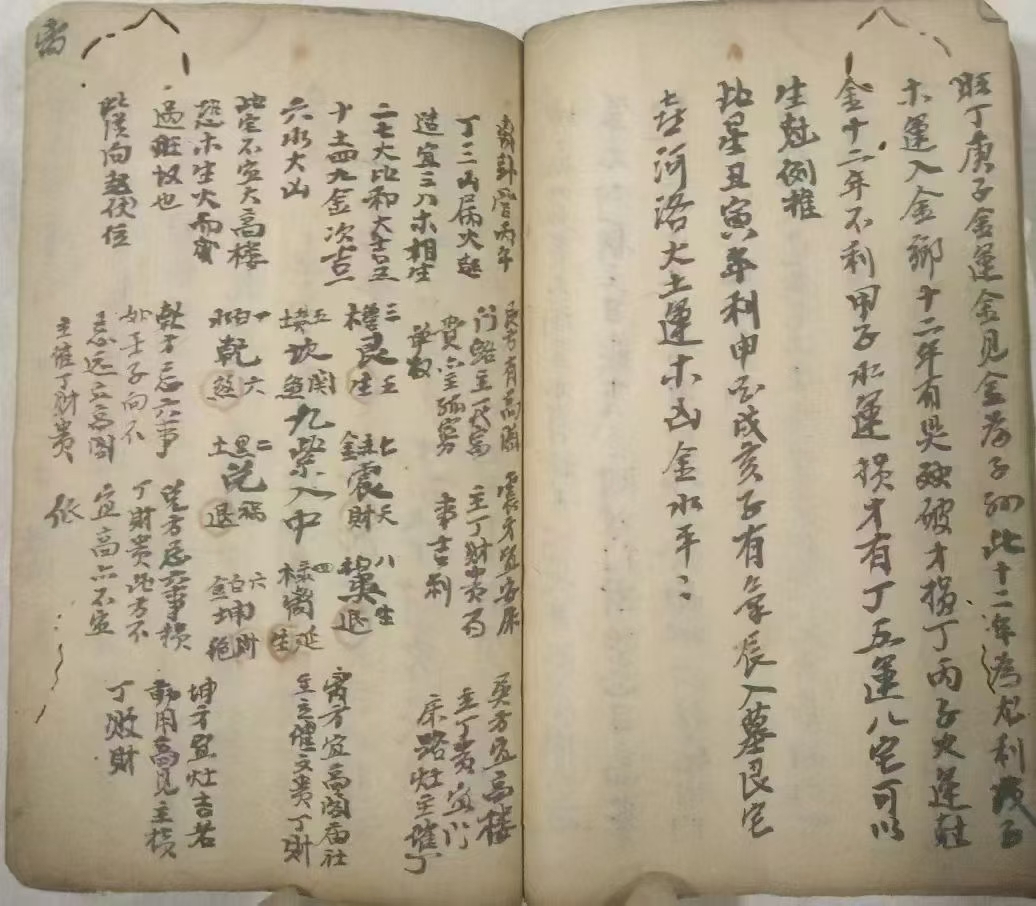 旺丁庚子金運金見金為子孫此十二年為尤利戊子
木運入金鄉十二年有哭破才損丁丙子火運尅
金十二年不利甲子水運損才有丁五運八宅可以
生尅例推
此星丑寅年利申酉戌亥子有年辰入墓艮宅
在河洛大土運木凶金水平
离
离卦管丙午
丁三山属火起
造宜三八木相生
二七火比和大吉五
十土四九金次吉
六水大凶
此宅不宜大高樓
恐木生火而
過旺故也
此從向起伏位
艮方有高
門路主代富
貴
震方宜安床
主丁財貴
事吉利
巽方宜高樓
主丁貴宜門
床路灶主催丁
三艮五
碧生
七震天
金財
八巽生
退
五坎閻
煞
九紫入中
四离延
祿生
一乾六
白水煞
二兌福
黑土退
六坤財
白金絕
乾方忌六事
如壬子向不
忌远立高阁
主催丁財貴
兌方忌六事損
丁財貴此方不
宜高亦不宜
低
离方宜高阁庙社
主催文貴丁財
坤方宜灶吉若
動用高見主損
丁敗財